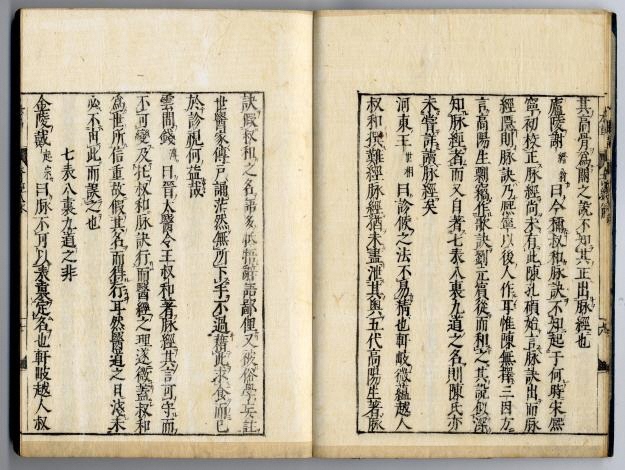 其高骨爲關之說不知其正出脉經也
廬陵謝縉翁曰今稱叔和脉訣不知起于何時宋熙
寧初校正脉經尚未有此陳孔碩始言脉訣出而脉
經隱則脉訣乃熙寧以後人作耳惟陳無擇三因方
言高陽生剽竊作歌訣劉元賓從而和之其說似深
知脉經者而又自著七表八裏九道之名則陳氏亦
未嘗詳讀脉經矣
河東王世相曰診候之法不易精也軒岐微蘊越人
叔和撰難經脉經猶未盡泄其奧五代高陽生著脉
訣假叔和之名語多牴牾辭語鄙俚又被俗學妄註
世醫家傳戶誦茫然無所下手不過藉此求食而已
於診視何益哉
雲間錢溥曰晉太醫令王叔和著脉經其言可守而
不可變及托叔和脉訣行而醫經之理遂微蓋叔和
爲世所信重故假其名而得行耳然醫道之日淺未
必不由此而誤之也
七表八裏九道之非
金陵戴起宗曰脉不可以表裏定名也軒岐越人叔